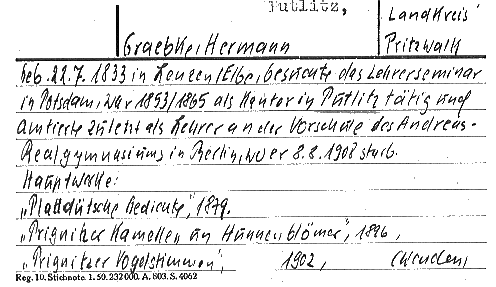 Putlitz,
Landkreis
Graebke, Hermann
Pritzwalk
Geb. 22.7. 1833 in Lenzen/Elbe, besuchte das Lehrerseminar
in Potsdam, war 1853/1865 als Kantor in Putlitz tätig und
amtierte zuletzt als Lehrer an der Vorschule des Andreas-
Realgymnasiums in Berlin, wo er 8.8.1908 starb.
Hauptwerke:
„Plattdütsche Gedichte", 1879.
„Prignitzer Kamellen un Hunnenblömer", 1896,
„Prignitzer Vogelstimmen", 1902, (Wenden,
Reg. 10. Stichnote. 1. 50. 232 000. A. 803. S. 4062